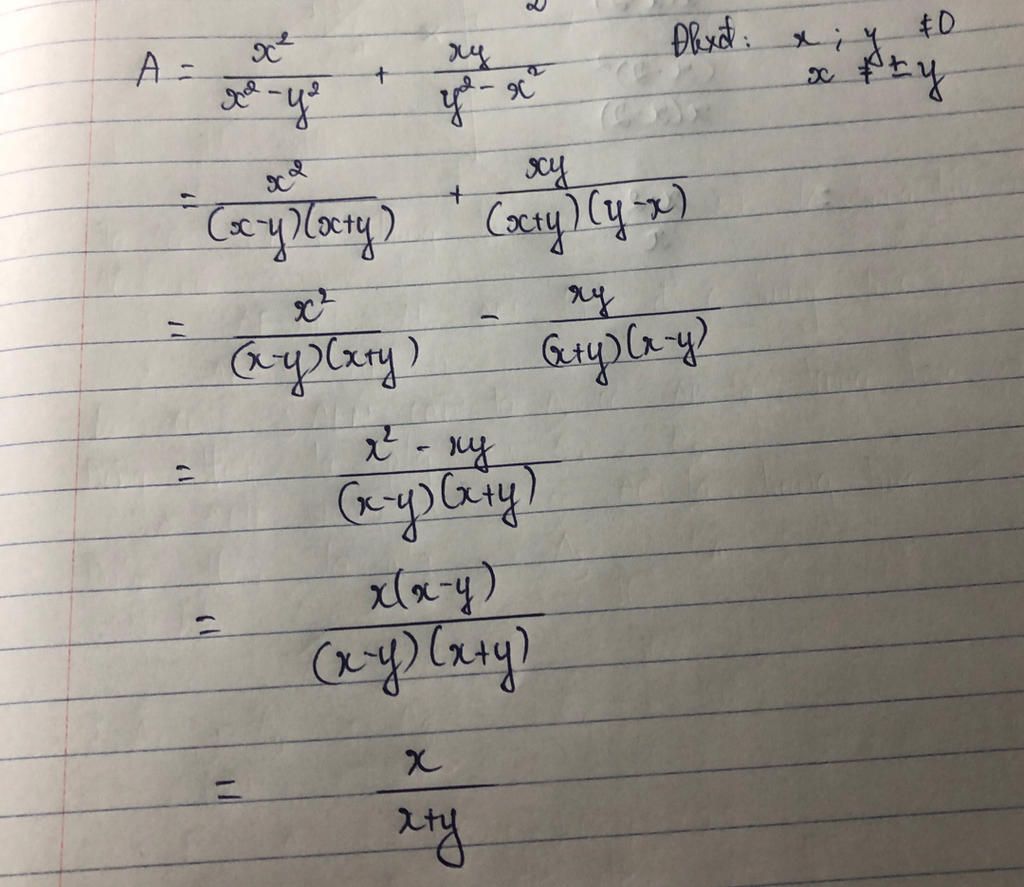 A = x²/(x² - y²) + xy/(y² - x²) Đkxđ: x ; y ≠ 0
x ≠ ± y
= x²/((x-y)(x+y)) + xy/((x+y)(y-x))
= x²/((x-y)(x+y)) - xy/((x+y)(x-y))
= (x² - xy)/((x-y)(x+y))
= x(x-y)/((x-y)(x+y))
= x/(x+y)